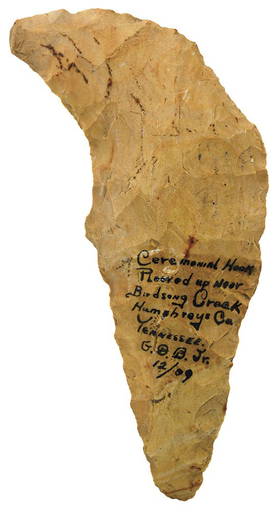 Ceremonial Hook
Plowed up Near
Birdsong Creek
Humphreys Co
Tennessee.
G.D.B. Jr.
12/09